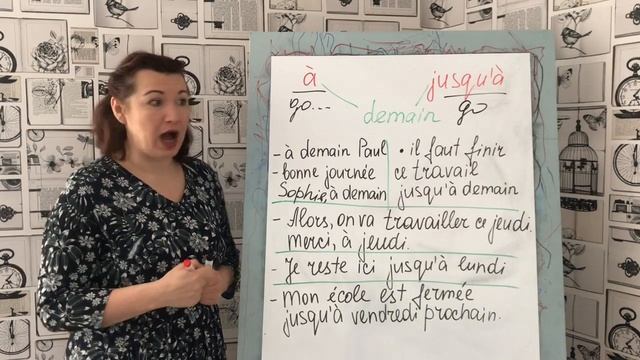 à jusqu'à
go... demain go
- à demain Paul • il faut finir
- bonne journée ce travaie
Sophie à demain jusqu'à demain
- Alors, on va travailler ce jeudi.
merci, à jeudi.
- Je reste ici jusqu'à lundi
- mon école est fermée
jusqu'à vendredi prochain.